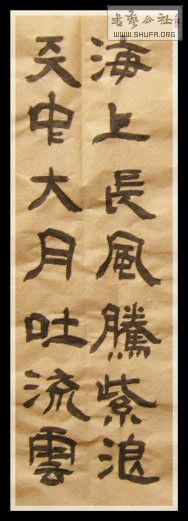 海上長風騰紫浪
天中大月吐流雲
书艺公社
WWW.SHUFA.ORG